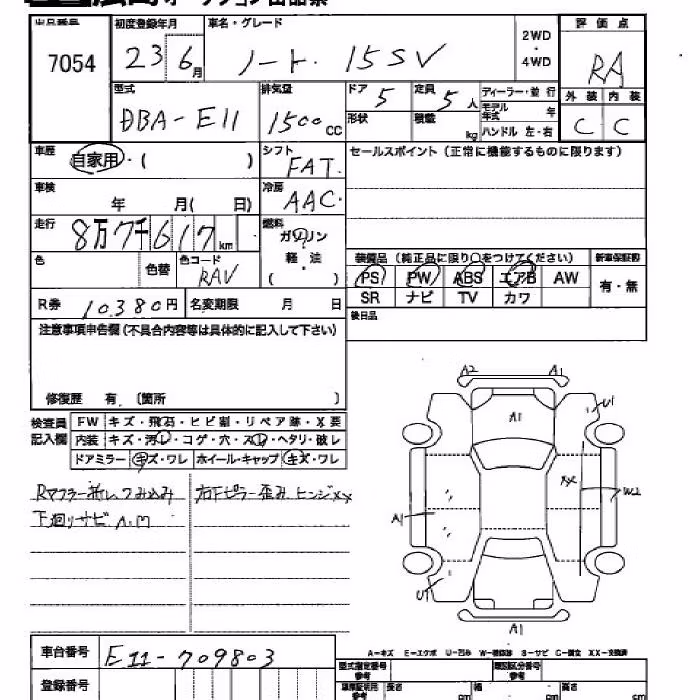 出品番号 初度登録年月 車名・グレード 2WD・4WD 評価点
7054 23 6月 ノート. 15SV RA
型式 排気量 ドア 5 定員 5人 ディーラー・並行 外装 内装
DBA-E11 1500cc 形状 積載 kg モデル年式 年 ハンドル 左・右 C C
車歴 自家用・( ) シフト FAT. セールスポイント(正常に機能するものに限ります)
車検 年 月( 日) 冷房 AAC.
走行 8万7千617km 燃料 ガソリン
軽・油
( )
色 色替 色コード RAV 装備品(純正品に限り○をつけてください) 新車保証書
PS PW ABS エアB AW 有・無
R券 10380円 名変期限 月 日 SR ナビ TV カワ
注意事項申告欄(不具合内容等は具体的に記入して下さい) 後日品
修復歴 有.〔箇所 〕
A2 A1
A1
U1
XX
W2
A1
A1
検査員記入欄 FW キズ・飛石・ヒビ割・リペア跡・X要
内装 キズ・汚レ・コゲ・穴・スレ・ヘタリ・破レ
ドアミラー キズ・ワレ ホイール・キャップ キズ・ワレ
Rマフラー折レつみ込み 右Fピラー歪み ヒンジXX
下廻りサビ A.M
A-キズ E-エクボ U-凹み W-補修跡 S-サビ C-腐食 XX-交換済
車台番号 E11-709803 型式指定番号 参考 類別区分番号 参考
登録番号 車庫証明用 参考 長さ cm 幅 cm 高さ cm